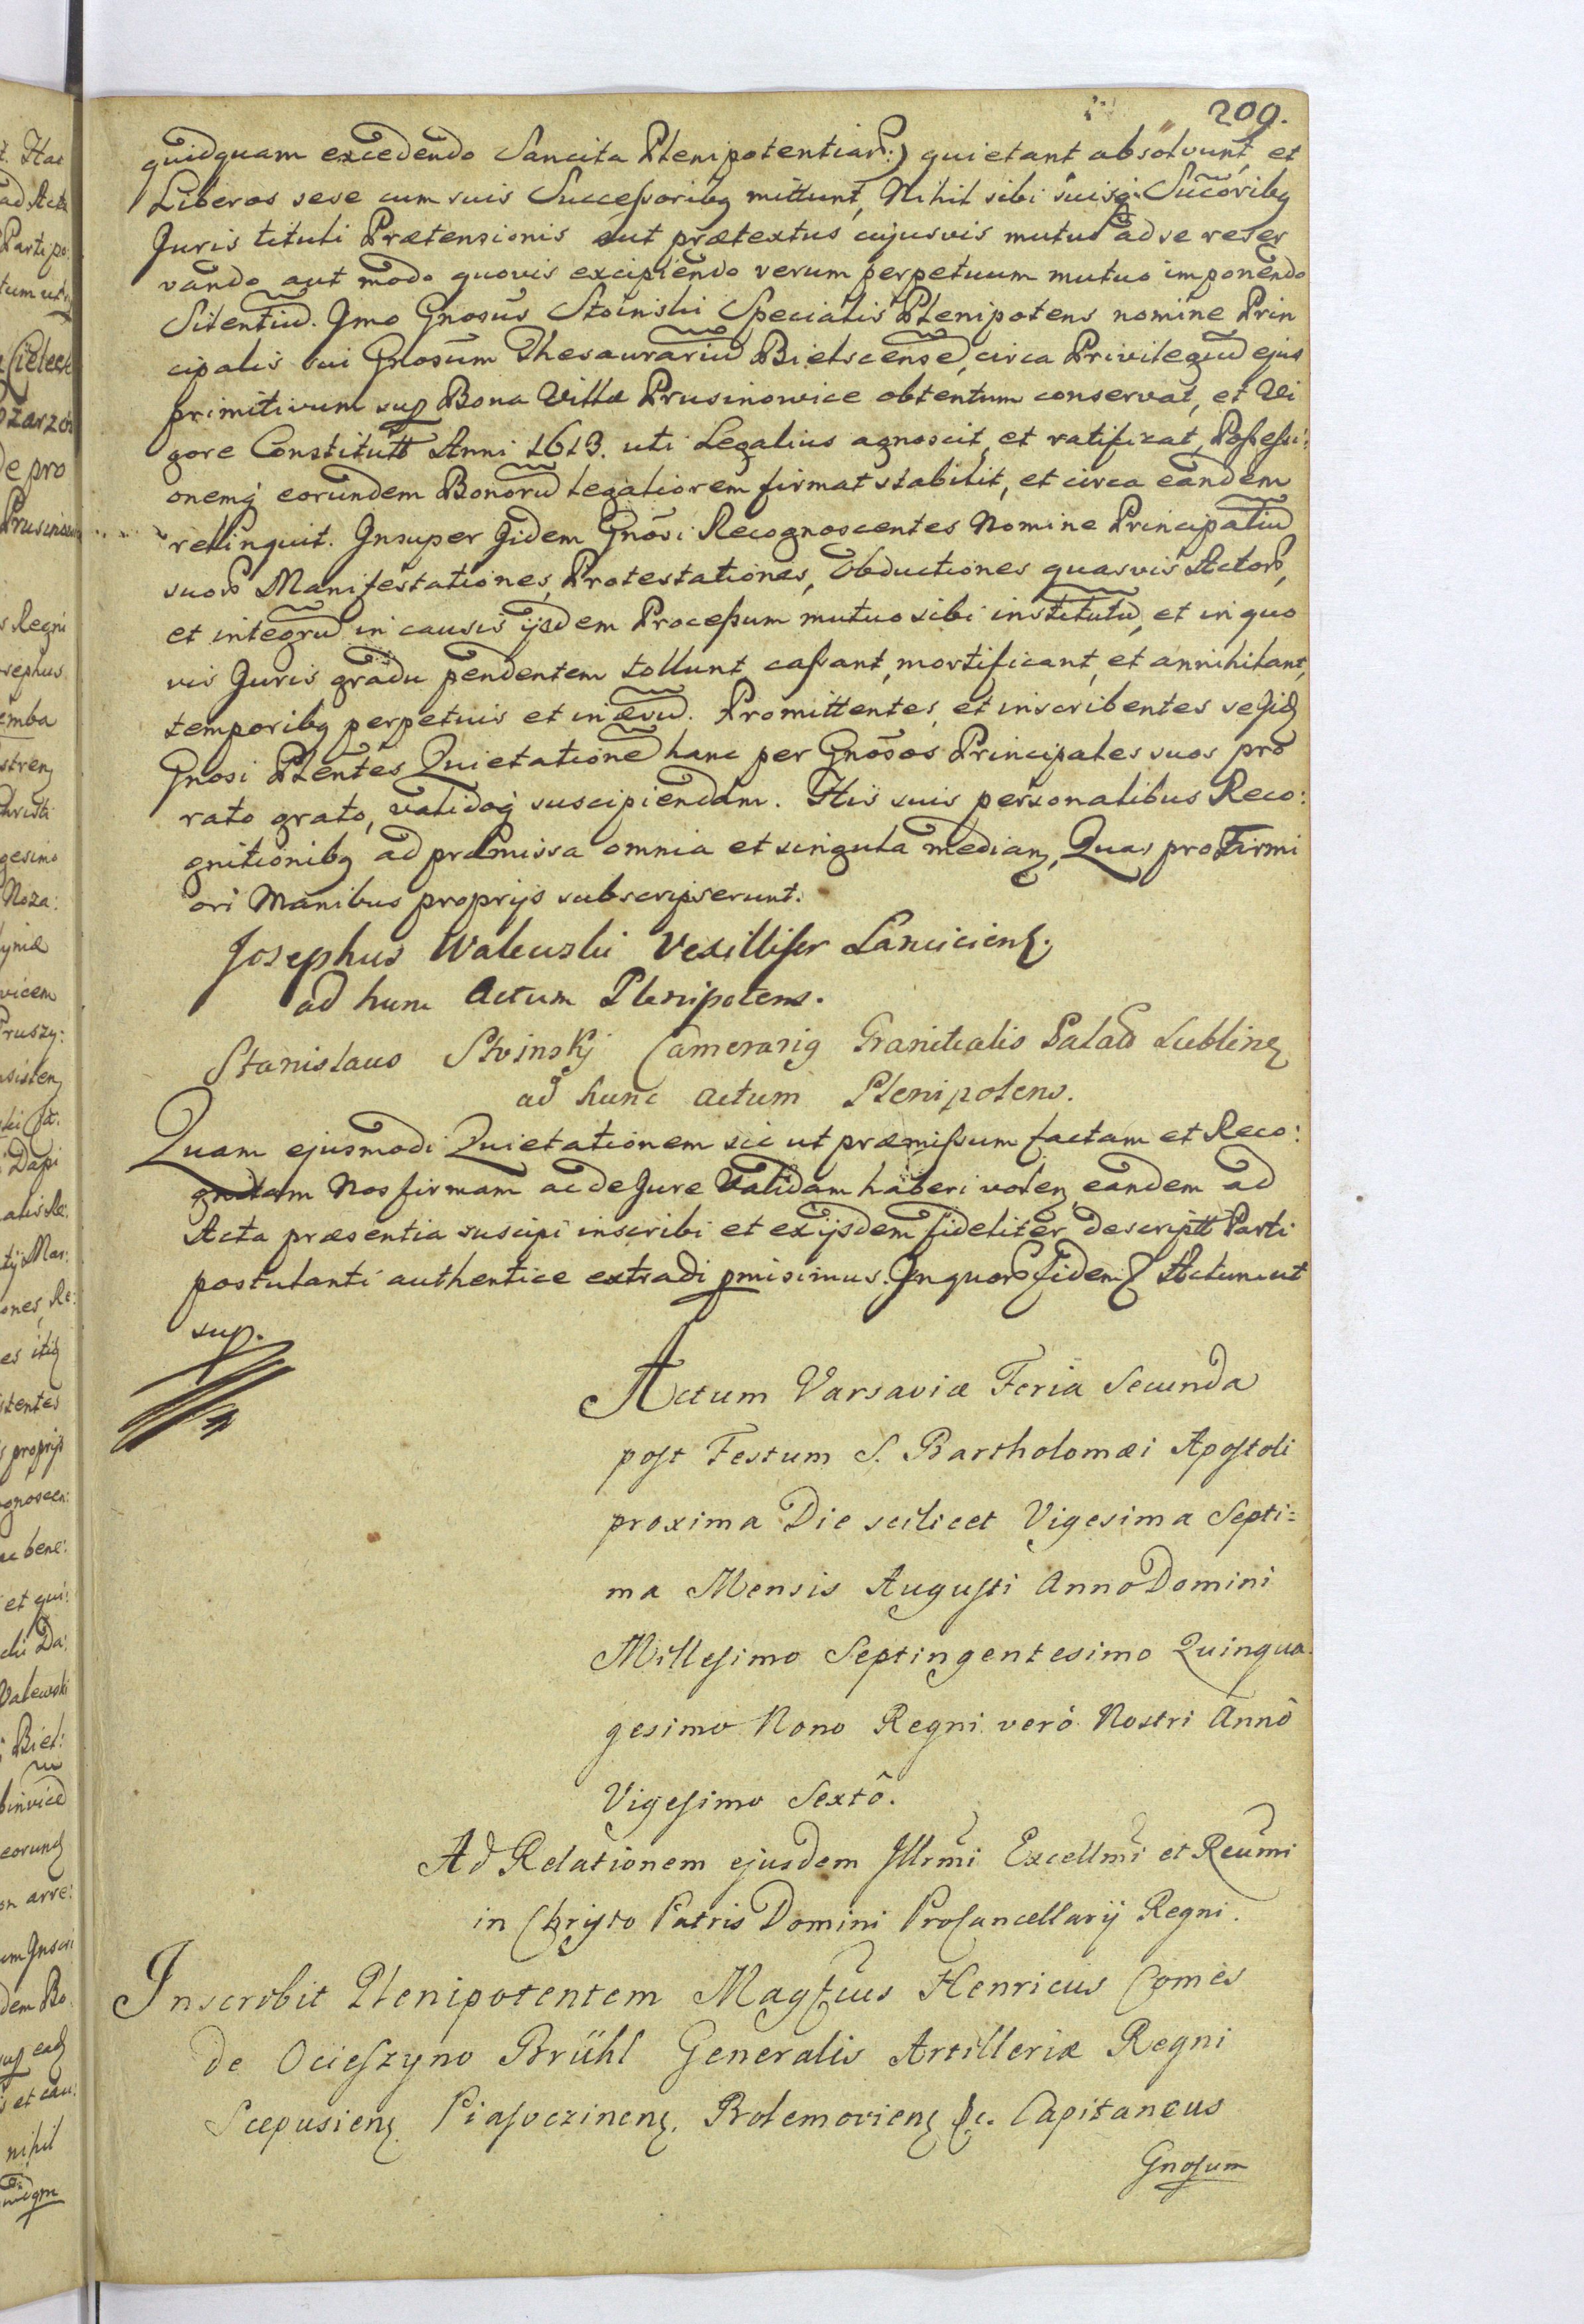 209.
quidquam excedendo Sancita Plenipotentiar:) quietant absolvunt, et
Liberos sese cum suis Successoribq mittunt, Nihil sibi suisq Succoribq
Juris tituli Prætensionis aut prætextus cujusvis mutuo ad se reser
vando aut modo quovis excipiendo verum perpetuum mutuo imponendo
Silentiũ. Jmo Gnosus Stoinski Specialis Plenipotens nomine Prin
cipalis sui Gnosum Thesaurariũ Bielscense, circa Privilegiũ ejus
primitivum sup Bona Villæ Prusinowice obtentum conservat, et Vi
gore Constitutt Anni 1613. uti Legalius agnoscit, et ratifizat, Possessi:
onemq eorundem Bonorũ legaliorem firmat stabilit, et circa eandem
relinquit. Jnsuper Jidem Gnosi Recognoscentes Nomine Principaliũ
suor Manifestationes, Protestationes, Obductiones quasvis Actor,
et integrũ in causis ijsdem Processum mutuo sibi institutũ, et in quo
vis Juris gradu pendentem tollunt, cassant, mortificant, et annihilant,
temporibq perpetuis et in ævũ. Promittentes, et inscribentes se Jid
Gnosi Plentes Quietationẽ hanc per Gnosos Principales suos pro
rato grato, validoq suscipiendam. His suis personalibus Reco:
gnitionibq ad præmissa omnia et singula median, Quas pro Firmi
ori Manibus proprijs subscripserunt.
Josephus Walewski Vexillifer Lanciciens.
ad hunc Actum Plenipotens.
Stanislaus Stoinskj Camerariq Granitialis Palad Lublinen
ad hunc actum Plenipotens.
Quam ejusmodi Quietationem sic ut præmissum factam et Reco:
gnitam Nos firmam ac de Jure Validam haberi volen eandem ad
Acta præsentia suscipi inscribi et ex ijsdem fideliter descriptt Parti
postulanti authentice extradi pmisimus. Jn quor fidem Actum ut
sup.
Actum Varsaviæ Feria Secunda
post Festum S. Bartholomæi Apostoli
proxima Die scilicet Vigesima Septi=
ma Mensis Augusti Anno Domini
Millesimo Septingentesimo Quinqua
gesimo Nono Regni verò Nostri Annô
Vigesimo Sextô.
Ad Relationem ejusdem Jllrmi Excellmi et Reumi
in Christo Patris Domini Procancellarij Regni.
Jnscribit Plenipotentem Magfcus Henricus Comes
de Ocieszyno Brühl Generalis Artilleriæ Regni
Scepusien Piasoczinen. Bolemovien &c. Capitaneus
Gnosum